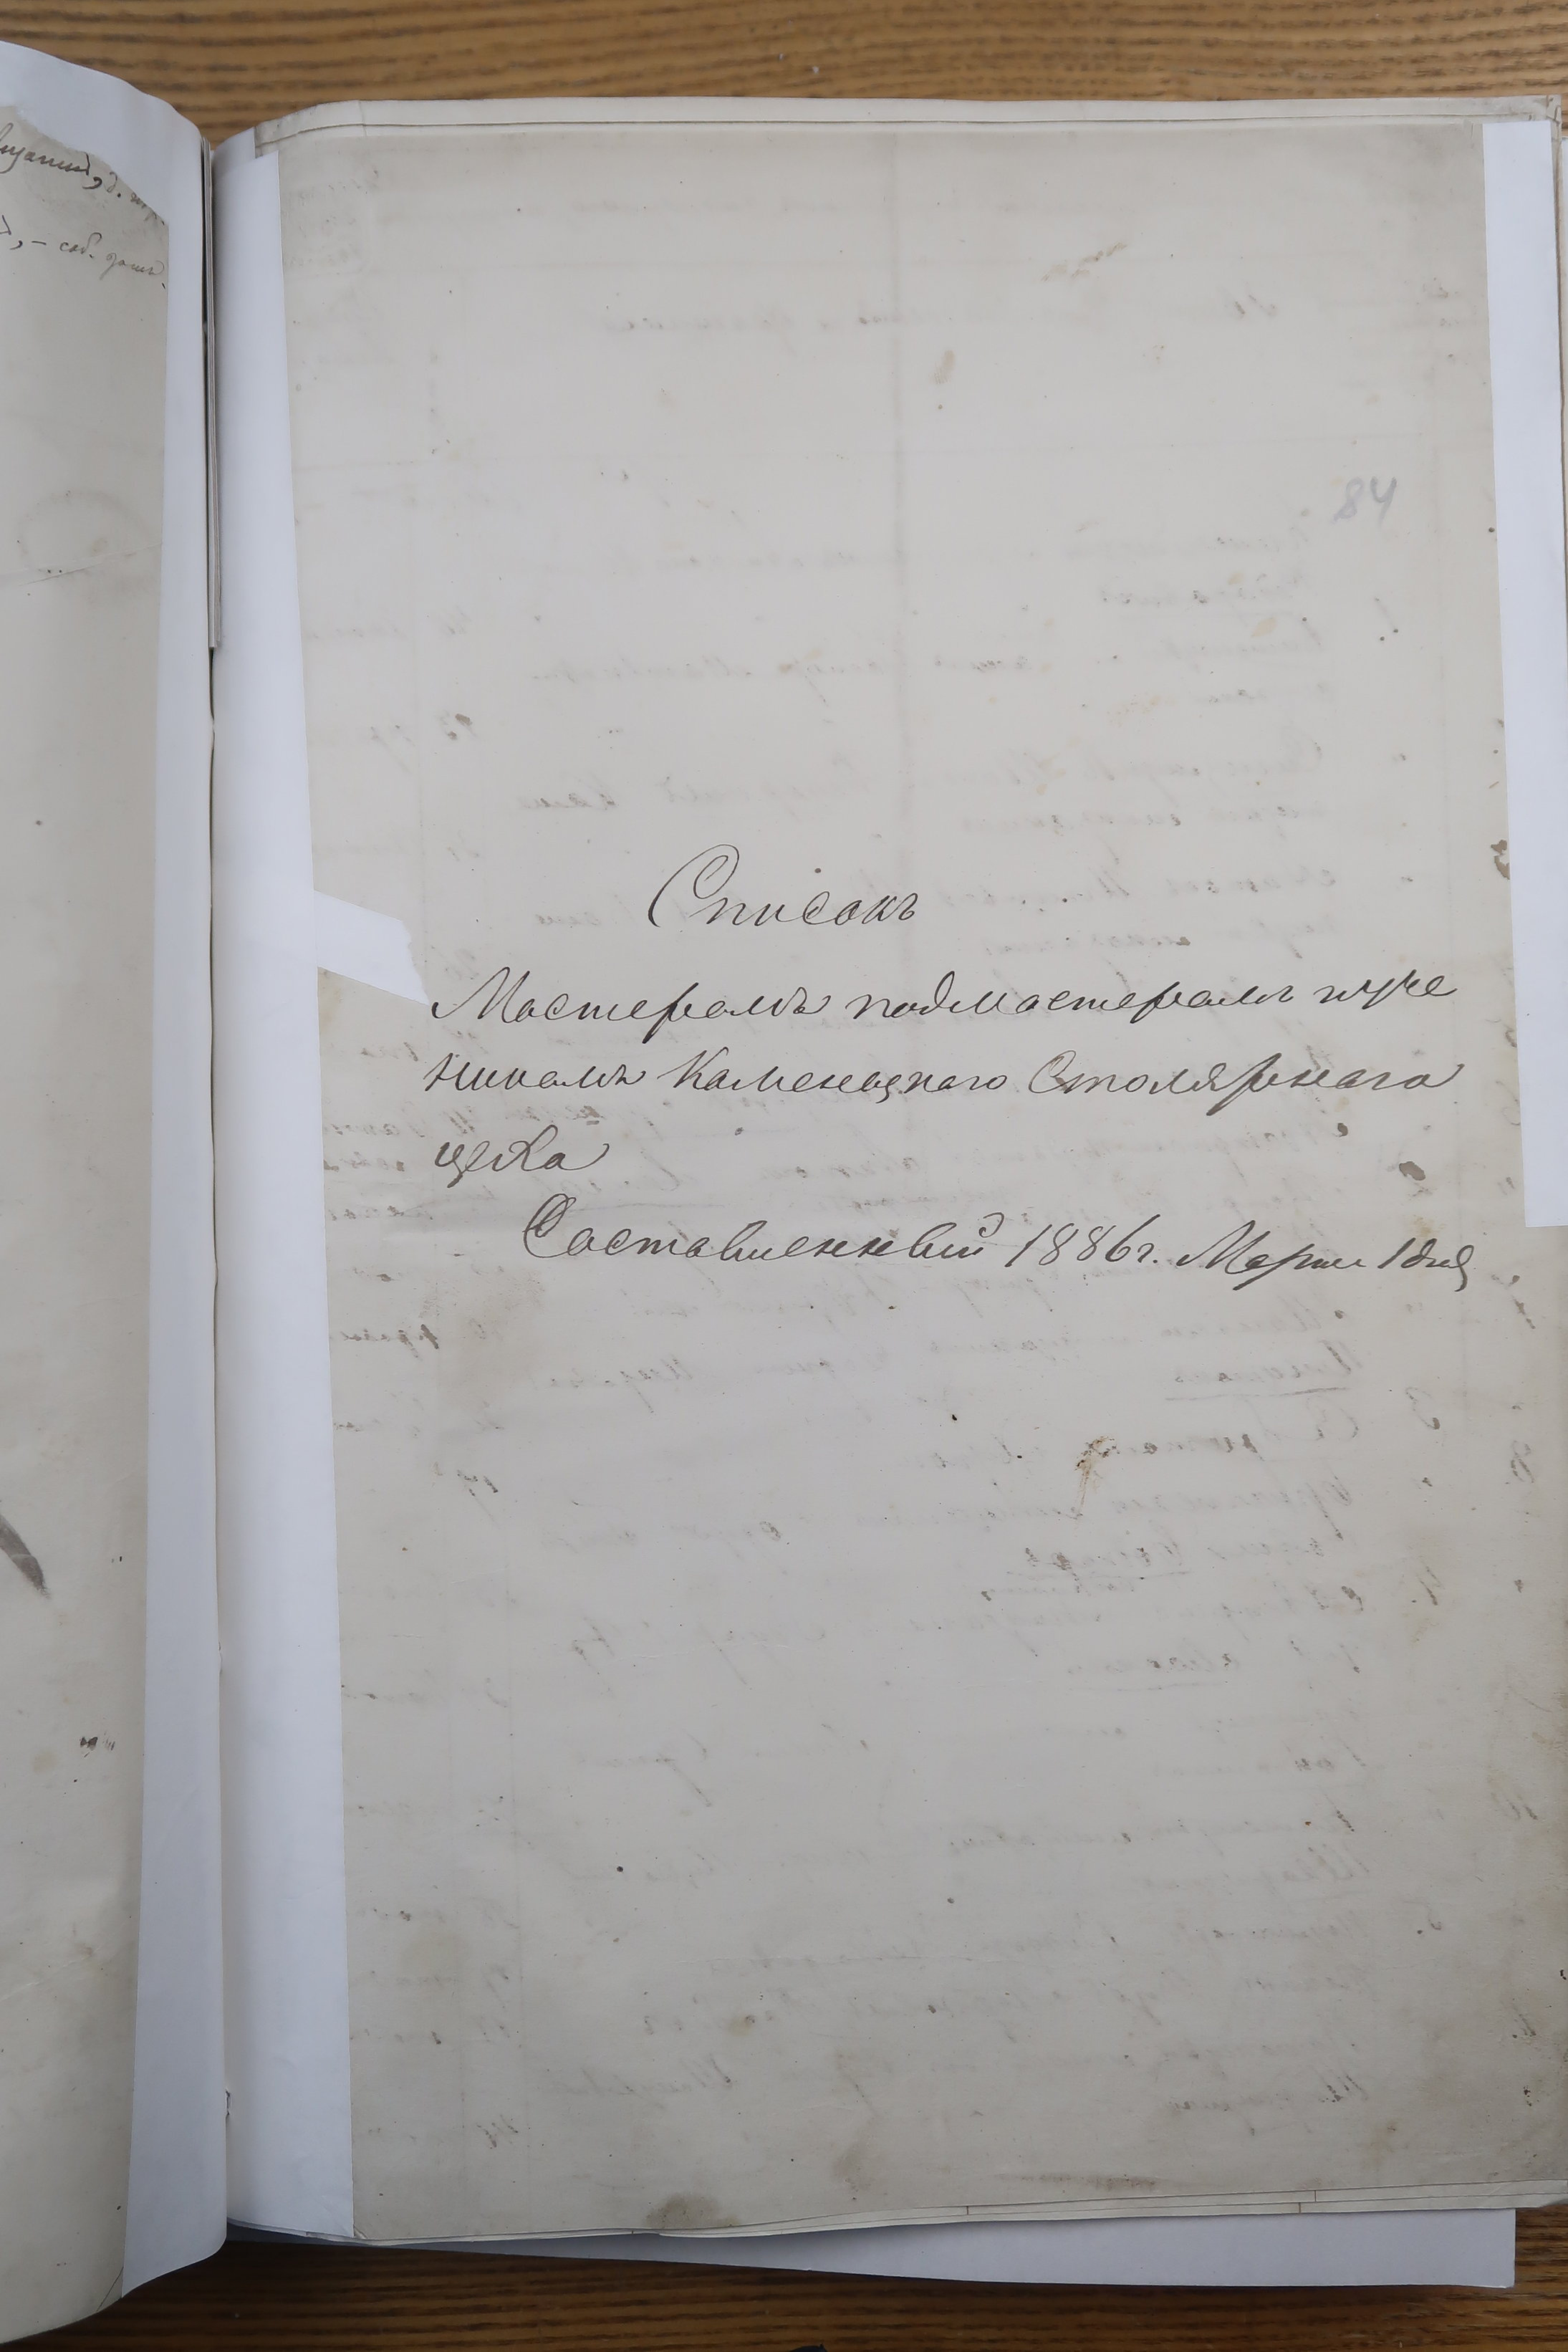 84
Списокъ
Мастерамъ подмастерамъ и уче
никамъ Каменецкаго Столярнаго
цеха
Составленный 1886 г. Марта 1 дня